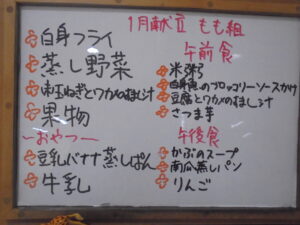 1月献立 もも組
白身フライ
蒸し野菜
果物
〜おやつ〜
豆乳バナナ蒸しぱん
牛乳
午前食
米粥
白身魚のブロッコリーソースかけ
豆腐とワカメのすまし汁
さつま芋
午後食
かぶのスープ
南瓜蒸しパン
りんご